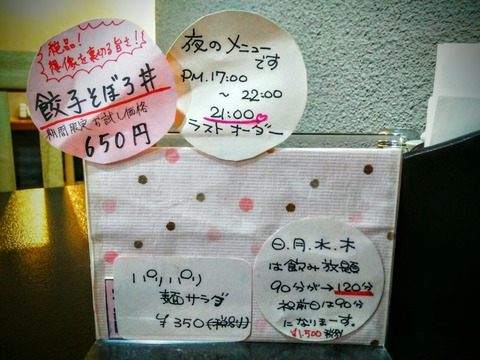 絶品!
想像を裏切る旨さ!
餃子そぼろ丼
期間限定 お試し価格
650円
夜のメニュー
です
PM.17:00
～22:00
21:00
ラストオーダー
パリパリ
麺サラダ
¥350(税別)
日.月.水.木
は飲み放題
90分が→120分
祝前日は90分
になりまーす。
¥1,500税別